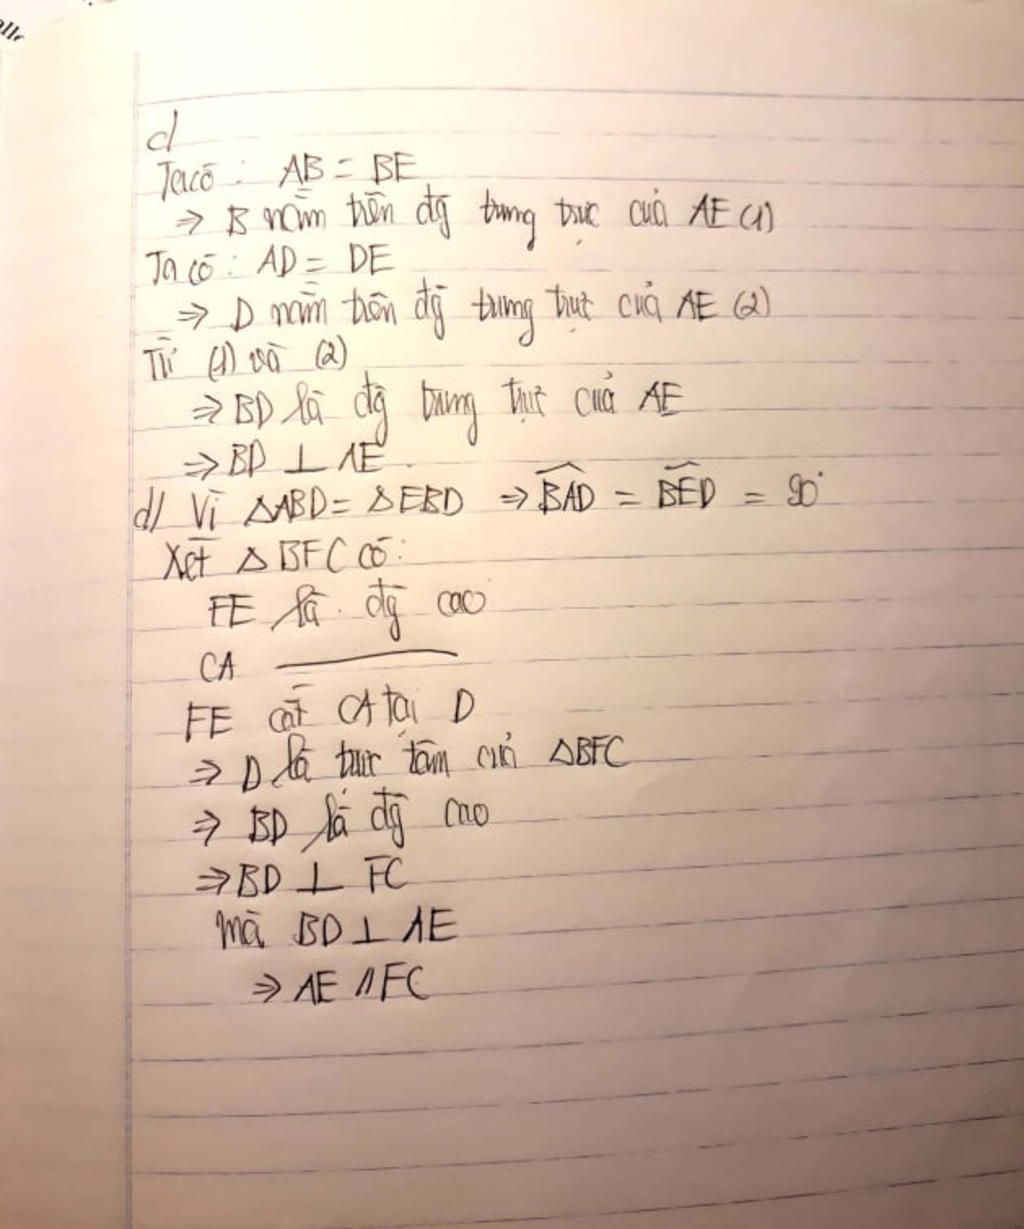 c/
Ta có : AB = BE
⇒ B nằm trên đg trung trực của AE (1)
Ta có : AD = DE
⇒ D nằm trên đg trung trực của AE (2)
Từ (1) và (2)
⇒ BD là đg trung trực của AE
⇒ BD ⊥ AE
d/ Vì ΔABD = ΔEBD ⇒ \widehat{BAD} = \widehat{BED} = 90°
Xét Δ BFC có :
FE là đg cao
CA ———
FE cắt CA tại D
⇒ D là trực tâm của ΔBFC
⇒ BD là đg cao
⇒ BD ⊥ FC
mà BD ⊥ AE
⇒ AE // FC